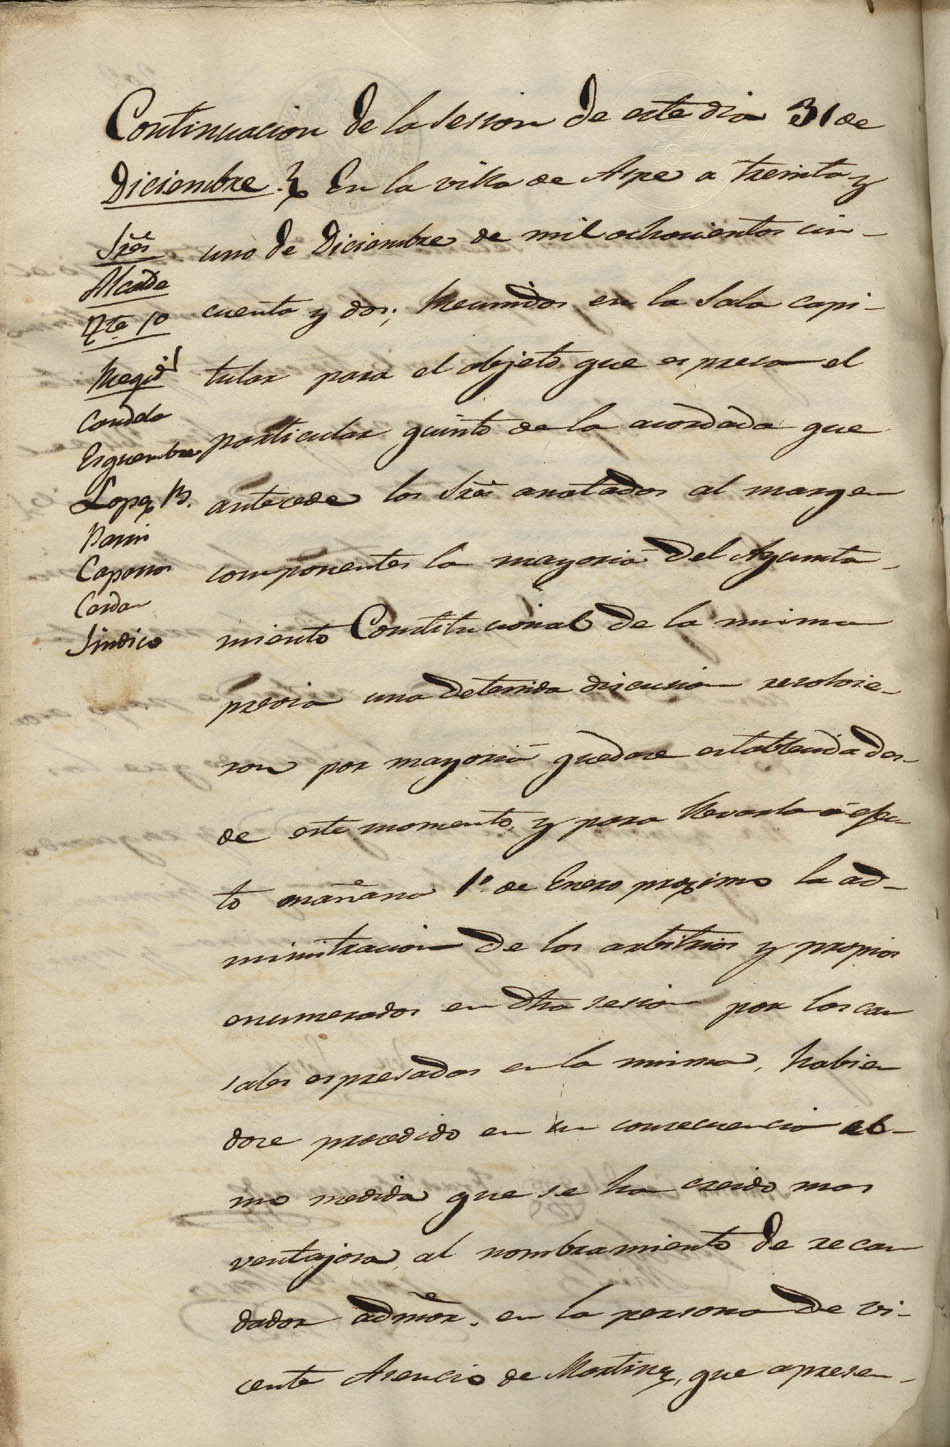 Continuacion de la sesion de este dia 31 de
Diciembre. En la villa de Aspe a treinta y
uno de Diciembre de mil ochocientos cin-
cuenta y dos; Reunidos en la Sala capi-
tular para el objeto que espresa el
particular quinto de la acordada que
antecede los Sres anotados al margen
componentes la mayoria del Ayunta-
miento Constitucional de la misma
previa una detenida discusion resolvie-
ron por mayoria quedase establecida des-
de este momento, y para llevarla a efec-
to mañana 1º de Enero proximo la ad-
ministracion de los arbitrios y propios
enumerados en dha sesion por las cau
sales espresadas en la misma, habien
dose procedido en su consecuencia
mo medida que se ha creido mas
ventajosa, al nombramiento de recau
dador admor. en la persona de Vi-
cente Asencio de Martinz, que apresen-
Sres
Alcalde
Tte 1º
Regid
Candela
Esquembre
Lopez B.
Pavin
Caparros
Cerdan
Sindico